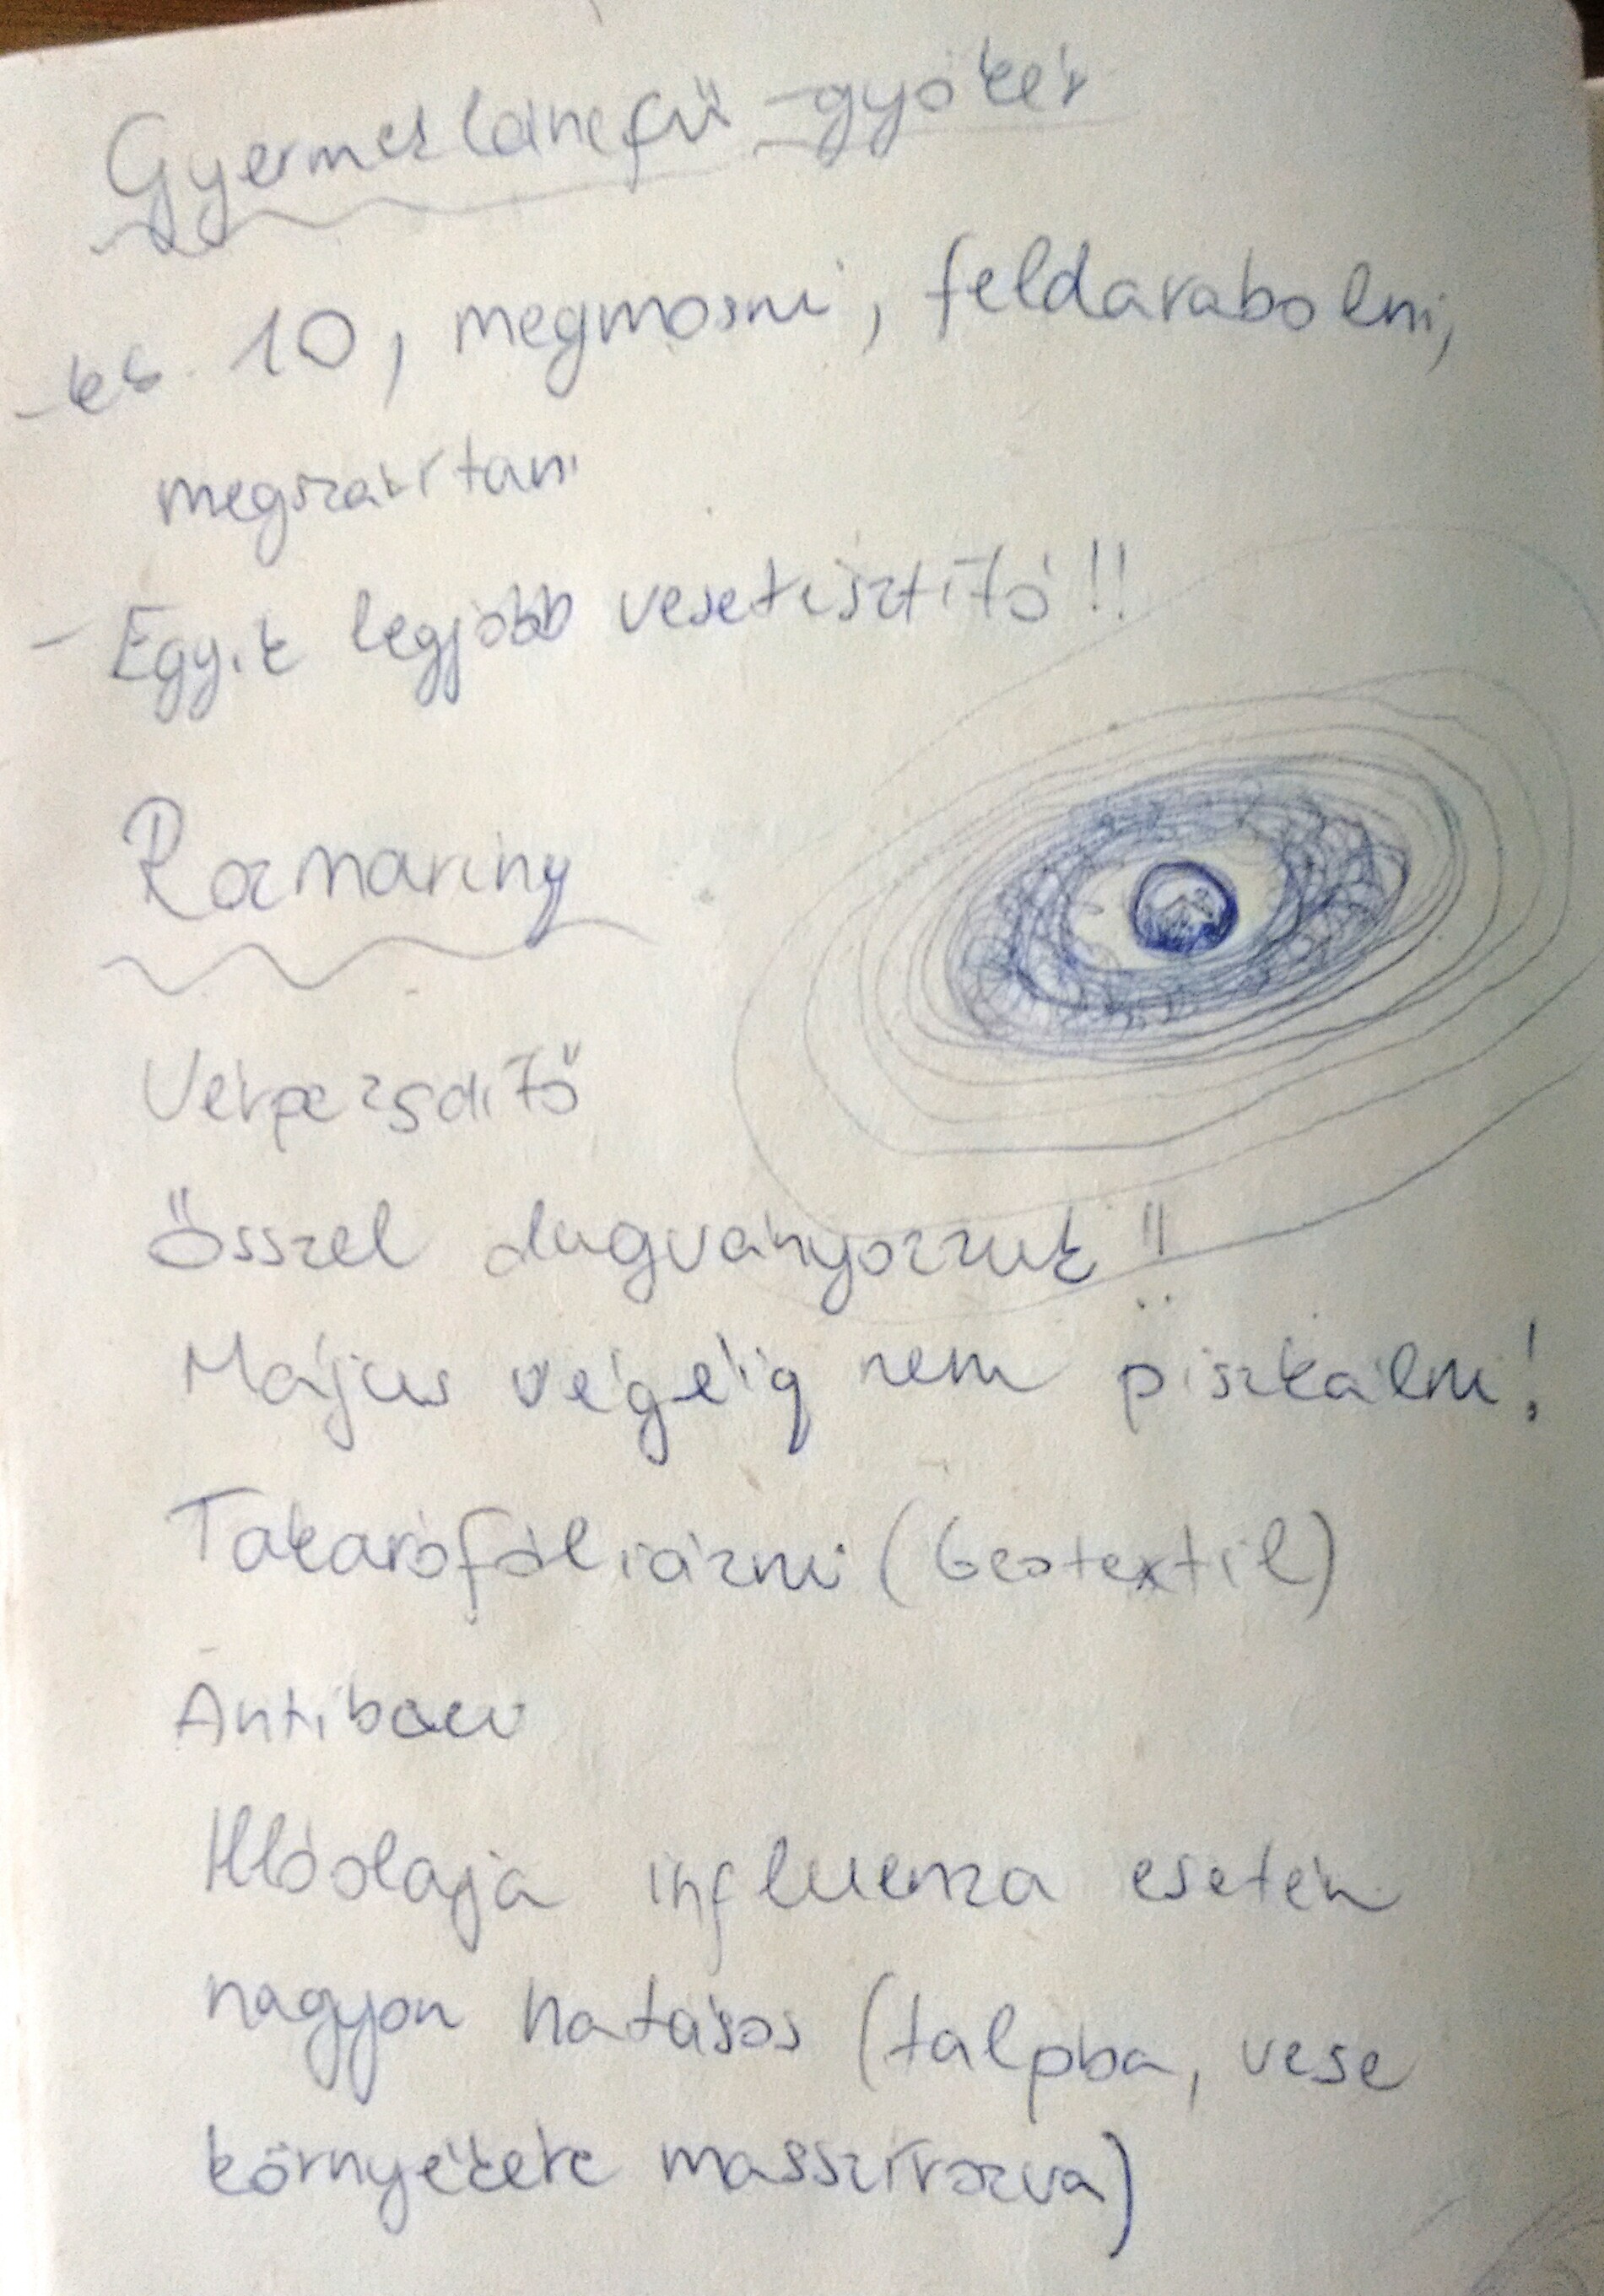 Gyermekláncfű -gyökér
- kb. 10, megmosni, feldarabolni,
megszárítani
- Egyik legjobb vesetisztító!!
Rozmaring
Vérpezsdítő
Ősszel dugványozzuk!!
Május végéig nem piszkálni!
Takarófóliázni (Geotextil)
Illóolaja influenza esetén
nagyon hatásos (talpba, vese
környékére masszírozva)